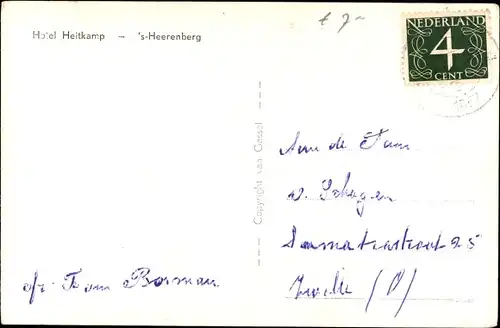 Hotel Heitkamp – 's-Heerenberg
€ 7-
NEDERLAND
4
CENT
Copyright van Cassel
Aan de Fam
v.
Sumatrastraat 25
Zwolle (O)
afz. Fam Borman